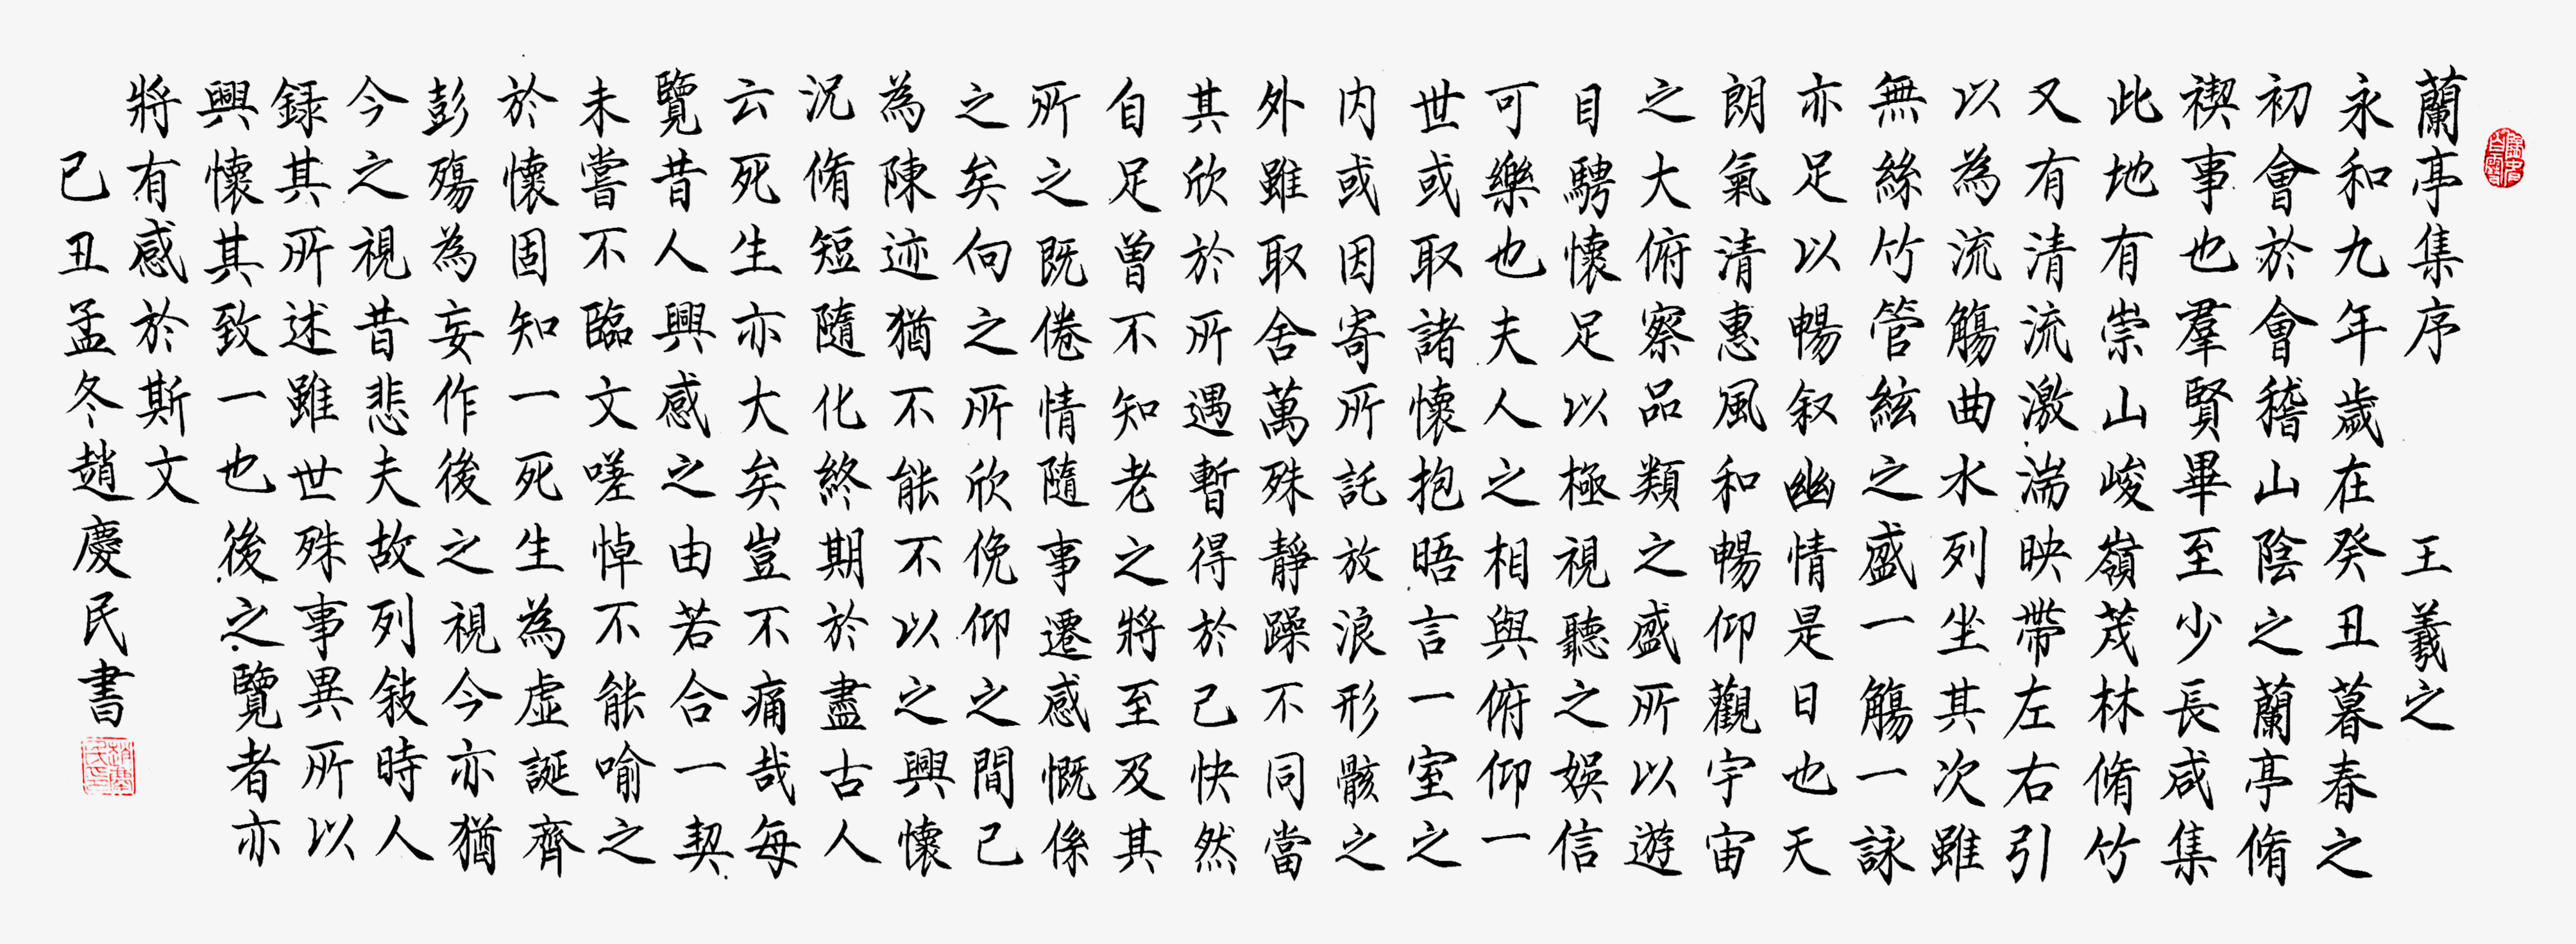 蘭亭集序 王羲之
永和九年歲在癸丑暮春之
初會於會稽山陰之蘭亭脩
禊事也羣賢畢至少長咸集
此地有崇山峻嶺茂林脩竹
又有清流激湍映帶左右引
以為流觴曲水列坐其次雖
無絲竹管絃之盛一觴一詠
亦足以暢叙幽情是日也天
朗氣清惠風和暢仰觀宇宙
之大俯察品類之盛所以遊
目騁懷足以極視聽之娛信
可樂也夫人之相與俯仰一
世或取諸懷抱晤言一室之
内或因寄所託放浪形骸之
外雖取舍萬殊靜躁不同當
其欣於所遇暫得於己快然
自足曾不知老之將至及其
所之既倦情隨事遷感慨係
之矣向之所欣俛仰之間已
為陳迹猶不能不以之興懷
況脩短隨化終期於盡古人
云死生亦大矣豈不痛哉每
覽昔人興感之由若合一契
未嘗不臨文嗟悼不能喻之
於懷固知一死生為虛誕齊
彭殤為妄作後之視今亦猶
今之視昔悲夫故列敍時人
録其所述雖世殊事異所以
興懷其致一也後之覽者亦
將有感於斯文
己丑孟冬趙慶民書